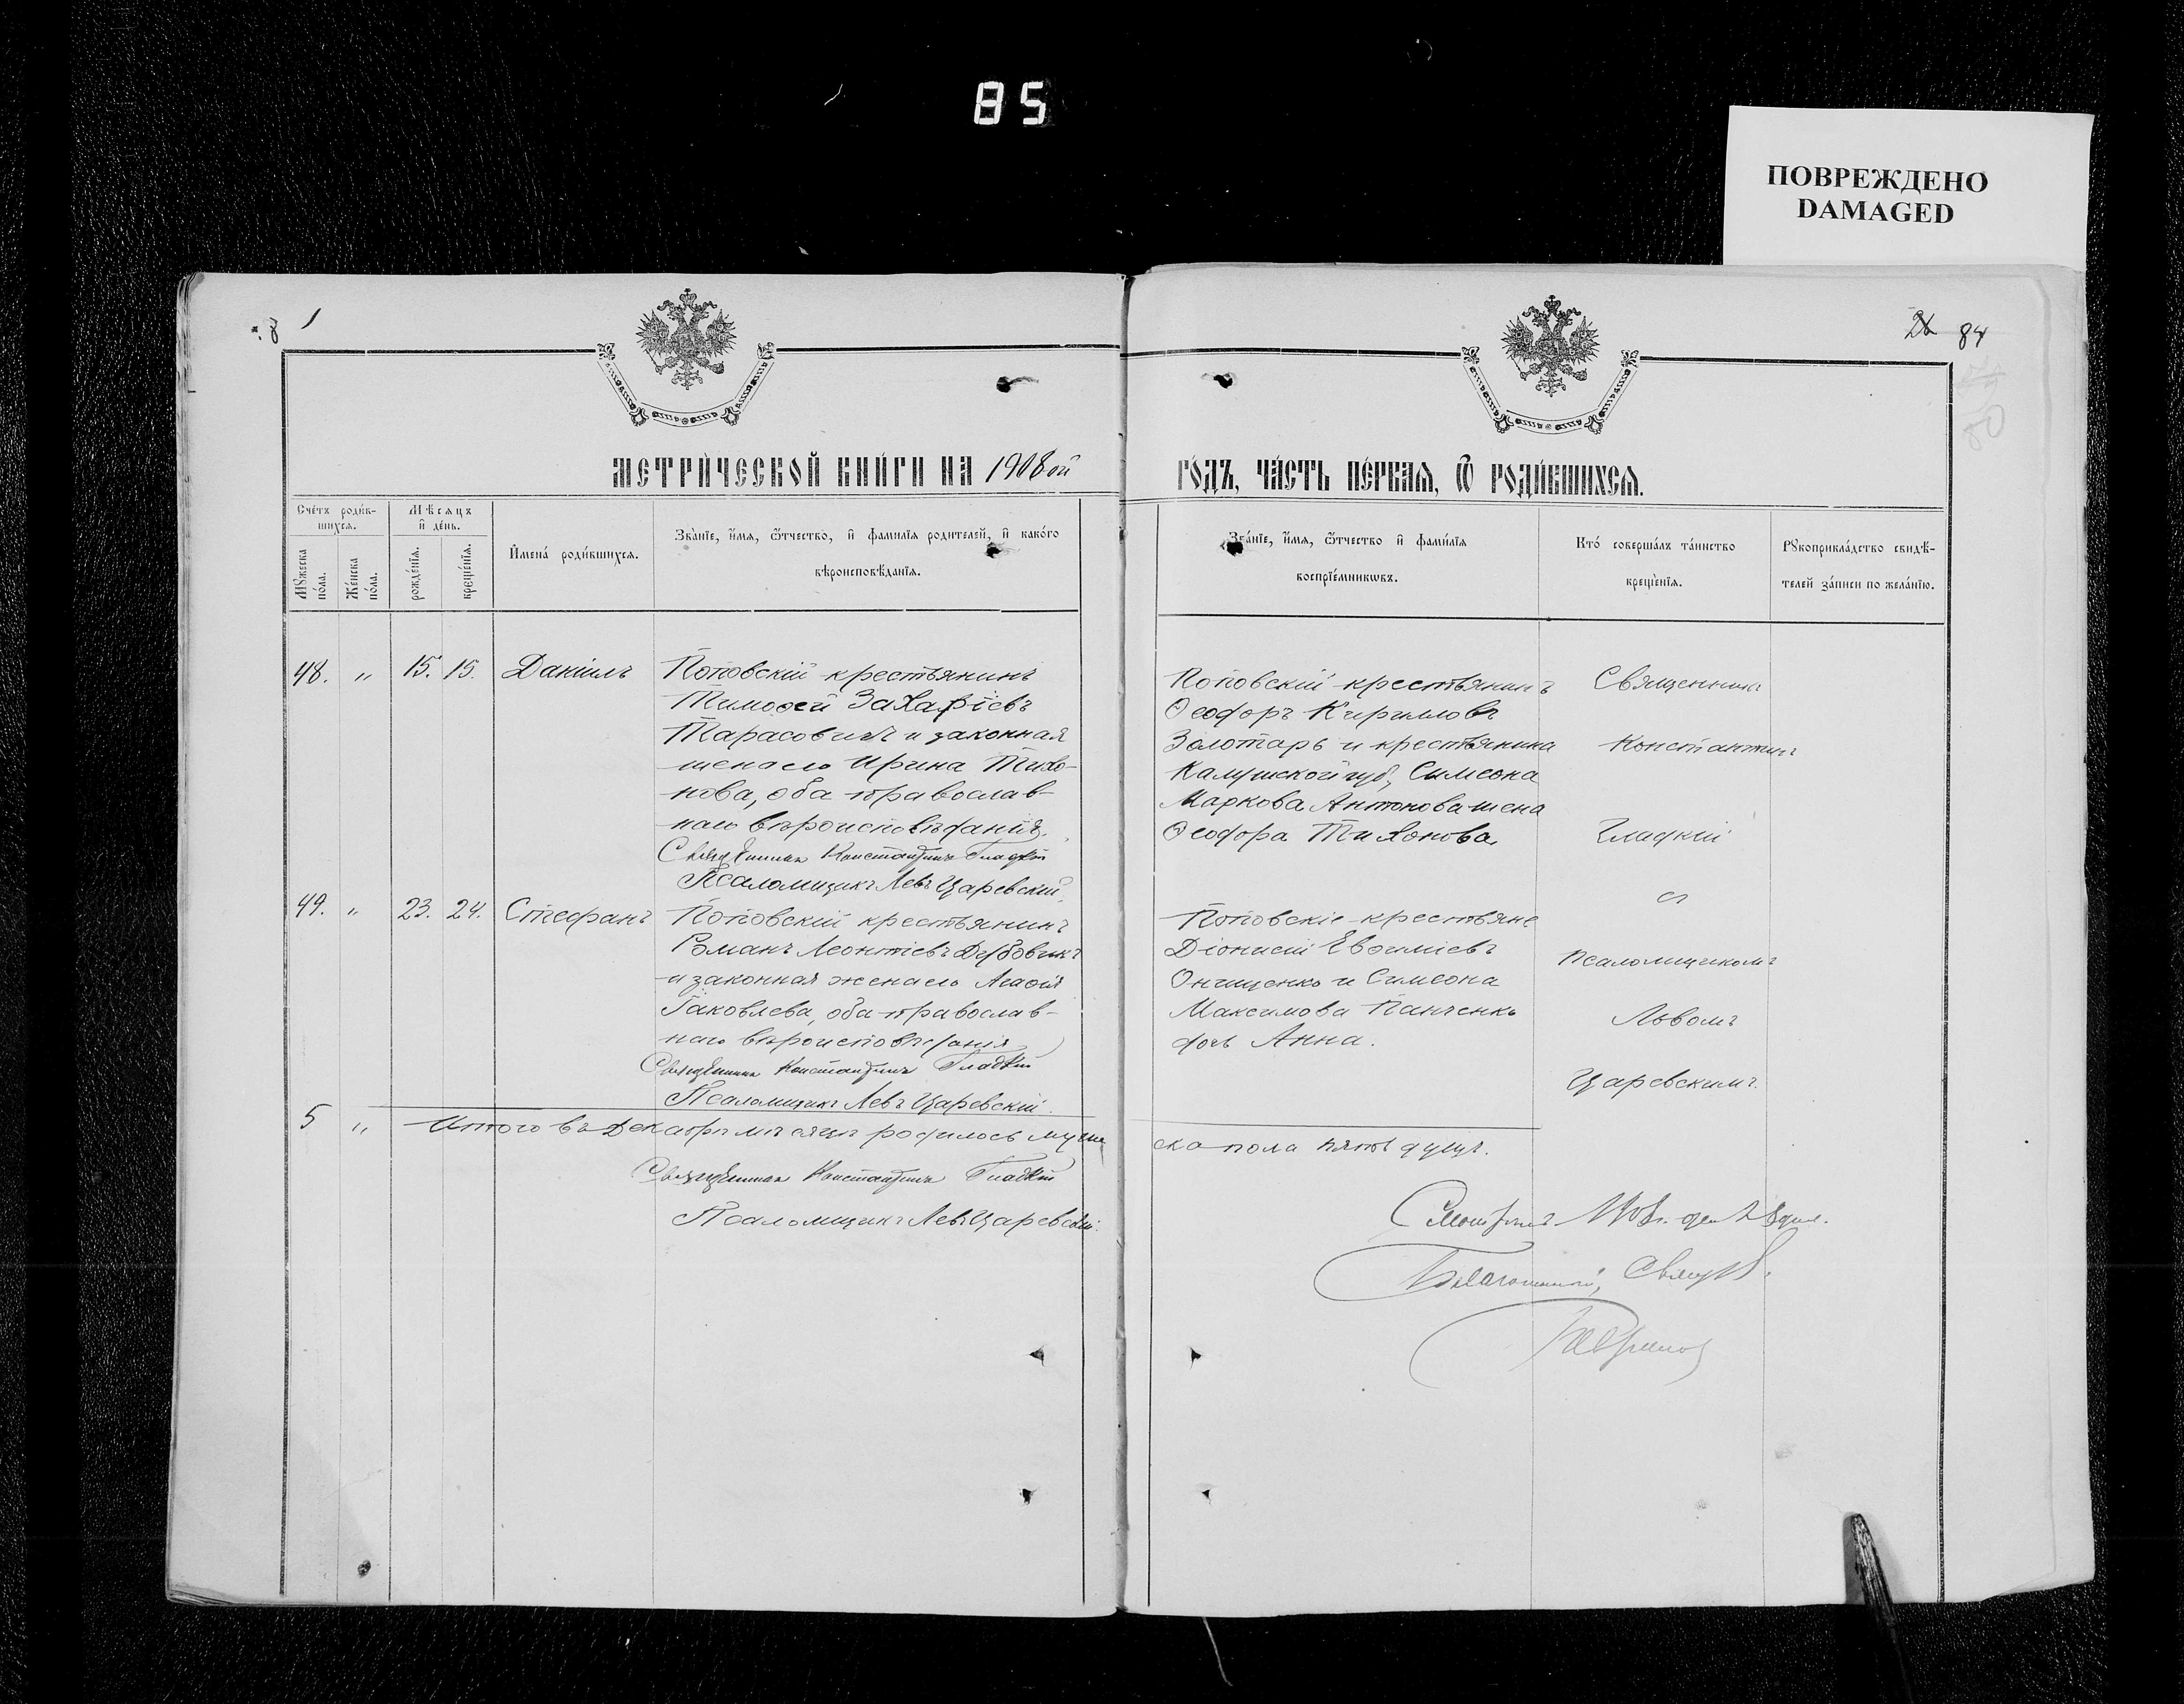 85
ПОВРЕЖДЕНО
DAMAGED
84
МЕТРИ́ЧЕСКОЙ КНИ́ГИ НА 1908 ой
ГО́ДЪ, ЧА́СТЬ ПЕ́РВАѦ, Ѽ РОДИ́ВШИХСѦ.
Сче́тъ роди́в-
шихсѧ.
Мѣсѧцъ
и҆ де́нь.
Мꙋ́жеска
по́ла.
Же́нска
по́ла.
рожде́нїѧ.
креще́нїѧ.
И҆мена́ роди́вшихсѧ.
Зва́нїе, и҆́мѧ, ѻ҆́тчество, и҆ фами́лїѧ роди́телей, и҆ како́го
вѣроисповѣ́данїѧ.
Зва́нїе, и҆́мѧ, ѻ҆́тчество и҆ фами́лїѧ
воспрїе́мникѡвъ.
Кто́ соверша́лъ та́инство
креще́нїѧ.
Рꙋкоприкла́дство свидѣ́-
телей за́писи по жела́нїю.
48. " 15. 15. Даніилъ
Поповскій крестьянинъ
Тимоѳей Захаріевъ
Тарасовичъ и законная
жена его Ирина Тихо-
нова, оба православ-
наго вѣроисповѣданія.
Священникъ Константинъ Гладкій
Псаломщикъ Левъ Царевскій.
Поповскій крестьянинъ
Ѳеодоръ Кирилловъ
Золотарь и крестьянина
Калужской губ., Симеона
Маркова Антонова жена
Ѳеодора Тихонова.
Священникъ
Константинъ
Гладкій
съ
Псаломщикомъ
Львомъ
Царевскимъ.
49. " 23. 24. Стефанъ
Поповскій крестьянинъ
Романъ Леонтіевъ Дубовикъ
и законная жена его Агаѳія
Іаковлева, оба православ-
наго вѣроисповѣданія
Священникъ Константинъ Гладкій
Псаломщикъ Левъ Царевскій.
Поповскіе крестьяне
Діонисій Евѳиміевъ
Онищенко и Симеона
Максимова Панченко
дочь Анна.
5 " Итого въ Декабрѣ мѣсяцѣ родилось муже
ска пола пять душъ.
Священникъ Константинъ Гладкій
Псаломщикъ Левъ Царевскій.
Благочинный, Свящ.